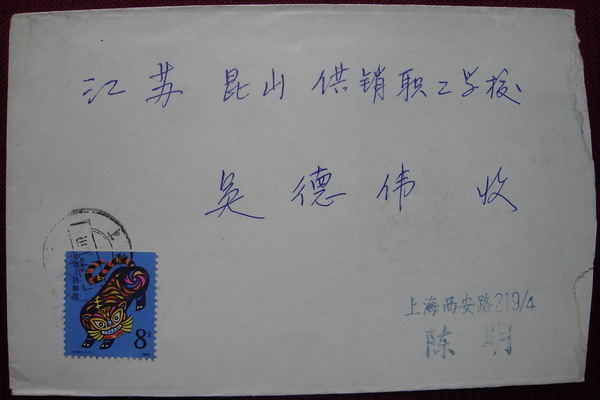 江苏 昆山 供销职工学校
吴德伟 收
中国人民邮政
8分
上海西安路219/4
陈 明